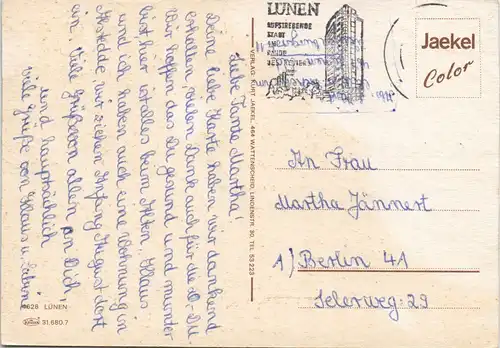 Liebe Tante Martha!
Deine liebe Karte haben wir dankend
erhalten vielen Dank auch für die 10.-DM.
Wir hoffen das Du gesund und munter
bist, hier ist alles beim Alten Klaus
und ich haben auch eine Wohnung in
wir ziehen Anfang August dort
ein. Viele Grüße von allen an Dich
und hauptsächlich
viele Grüße von Klaus u.
4628 LÜNEN
31.680.7
VERLAG KURT JAEKEL, 464 WATTENSCHEID, LINDENSTR. 30, TEL. 53223
LÜNEN
AUFSTREBENDE
STADT
Jaekel
Color
An Frau
Martha Jännert
1/Berlin 41
Selerweg 29